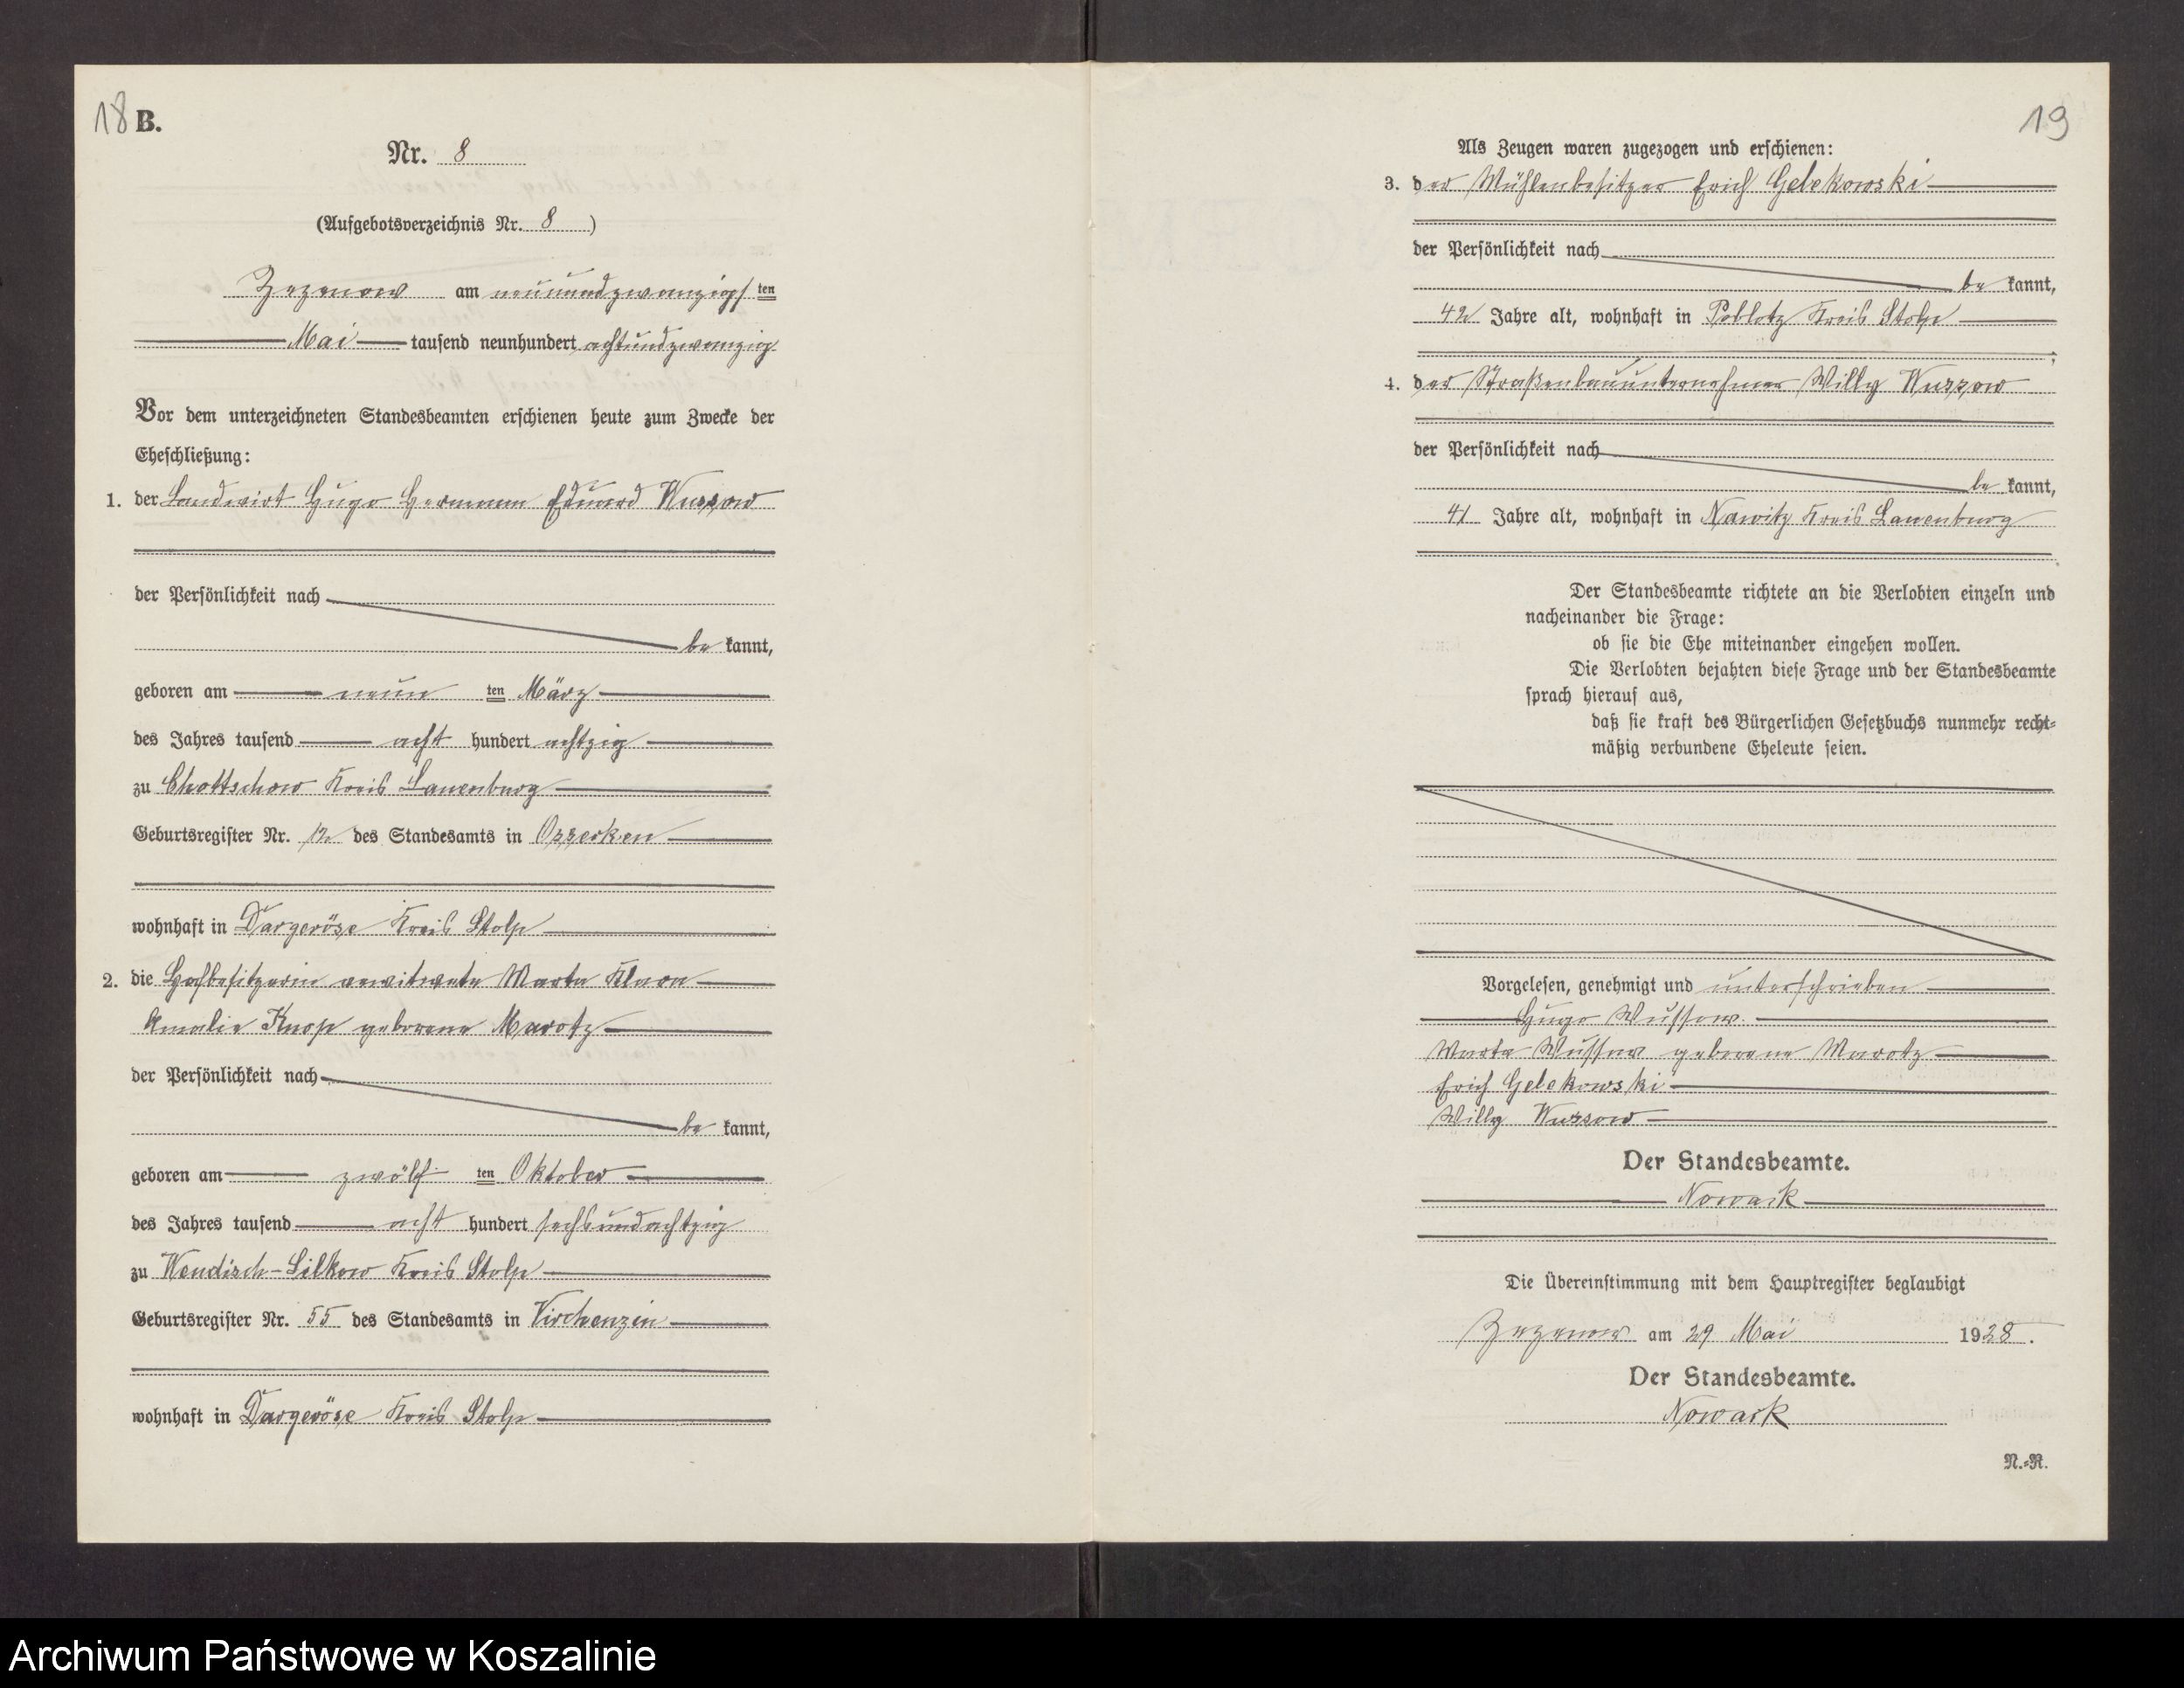 18 B.
Nr. 8
(Aufgebotsverzeichnis Nr. 8 )
Zezenow am neunundzwanzigsten
Mai tausend neunhundert achtundzwanzig
Vor dem unterzeichneten Standesbeamten erschienen heute zum Zwecke der
Eheschließung:
1. der Landwirt Hugo Hermann Eduard Wussow
der Persönlichkeit nach
be kannt,
geboren am neun ten März
des Jahres tausend acht hundert achtzig
zu Chottschow Kreis Lauenburg
Geburtsregister Nr. 12 des Standesamts in Ossecken
wohnhaft in Dargeröse Kreis Stolp
2. die Hofbesitzerin verwitwete Marta Klara
Amalie Knop geborene Marotz
der Persönlichkeit nach
be kannt,
geboren am zwölf ten Oktober
des Jahres tausend acht hundert sechsundachtzig
zu Wendisch-Silkow Kreis Stolp
Geburtsregister Nr. 55 des Standesamts in Virchenzin
wohnhaft in Dargeröse Kreis Stolp
19
Als Zeugen waren zugezogen und erschienen:
3. der Mühlenbesitzer Erich Gelekowski
der Persönlichkeit nach
be kannt,
42 Jahre alt, wohnhaft in Poblotz Kreis Stolp
;
4. der Straßenbauunternehmer Willy Wussow
der Persönlichkeit nach
be kannt,
41 Jahre alt, wohnhaft in Nawitz Kreis Lauenburg
.
Der Standesbeamte richtete an die Verlobten einzeln und
nacheinander die Frage:
ob sie die Ehe miteinander eingehen wollen.
Die Verlobten bejahten diese Frage und der Standesbeamte
sprach hierauf aus,
daß sie kraft des Bürgerlichen Gesetzbuchs nunmehr recht-
mäßig verbundene Eheleute seien.
Vorgelesen, genehmigt und unterschrieben
Hugo Wussow.
Marta Wussow geborene Marotz
Erich Gelekowski
Willy Wussow
Der Standesbeamte.
Nowack
Die Übereinstimmung mit dem Hauptregister beglaubigt
Zezenow am 29 Mai 1928.
Der Standesbeamte.
Nowack
N.-R.
Archiwum Państwowe w Koszalinie